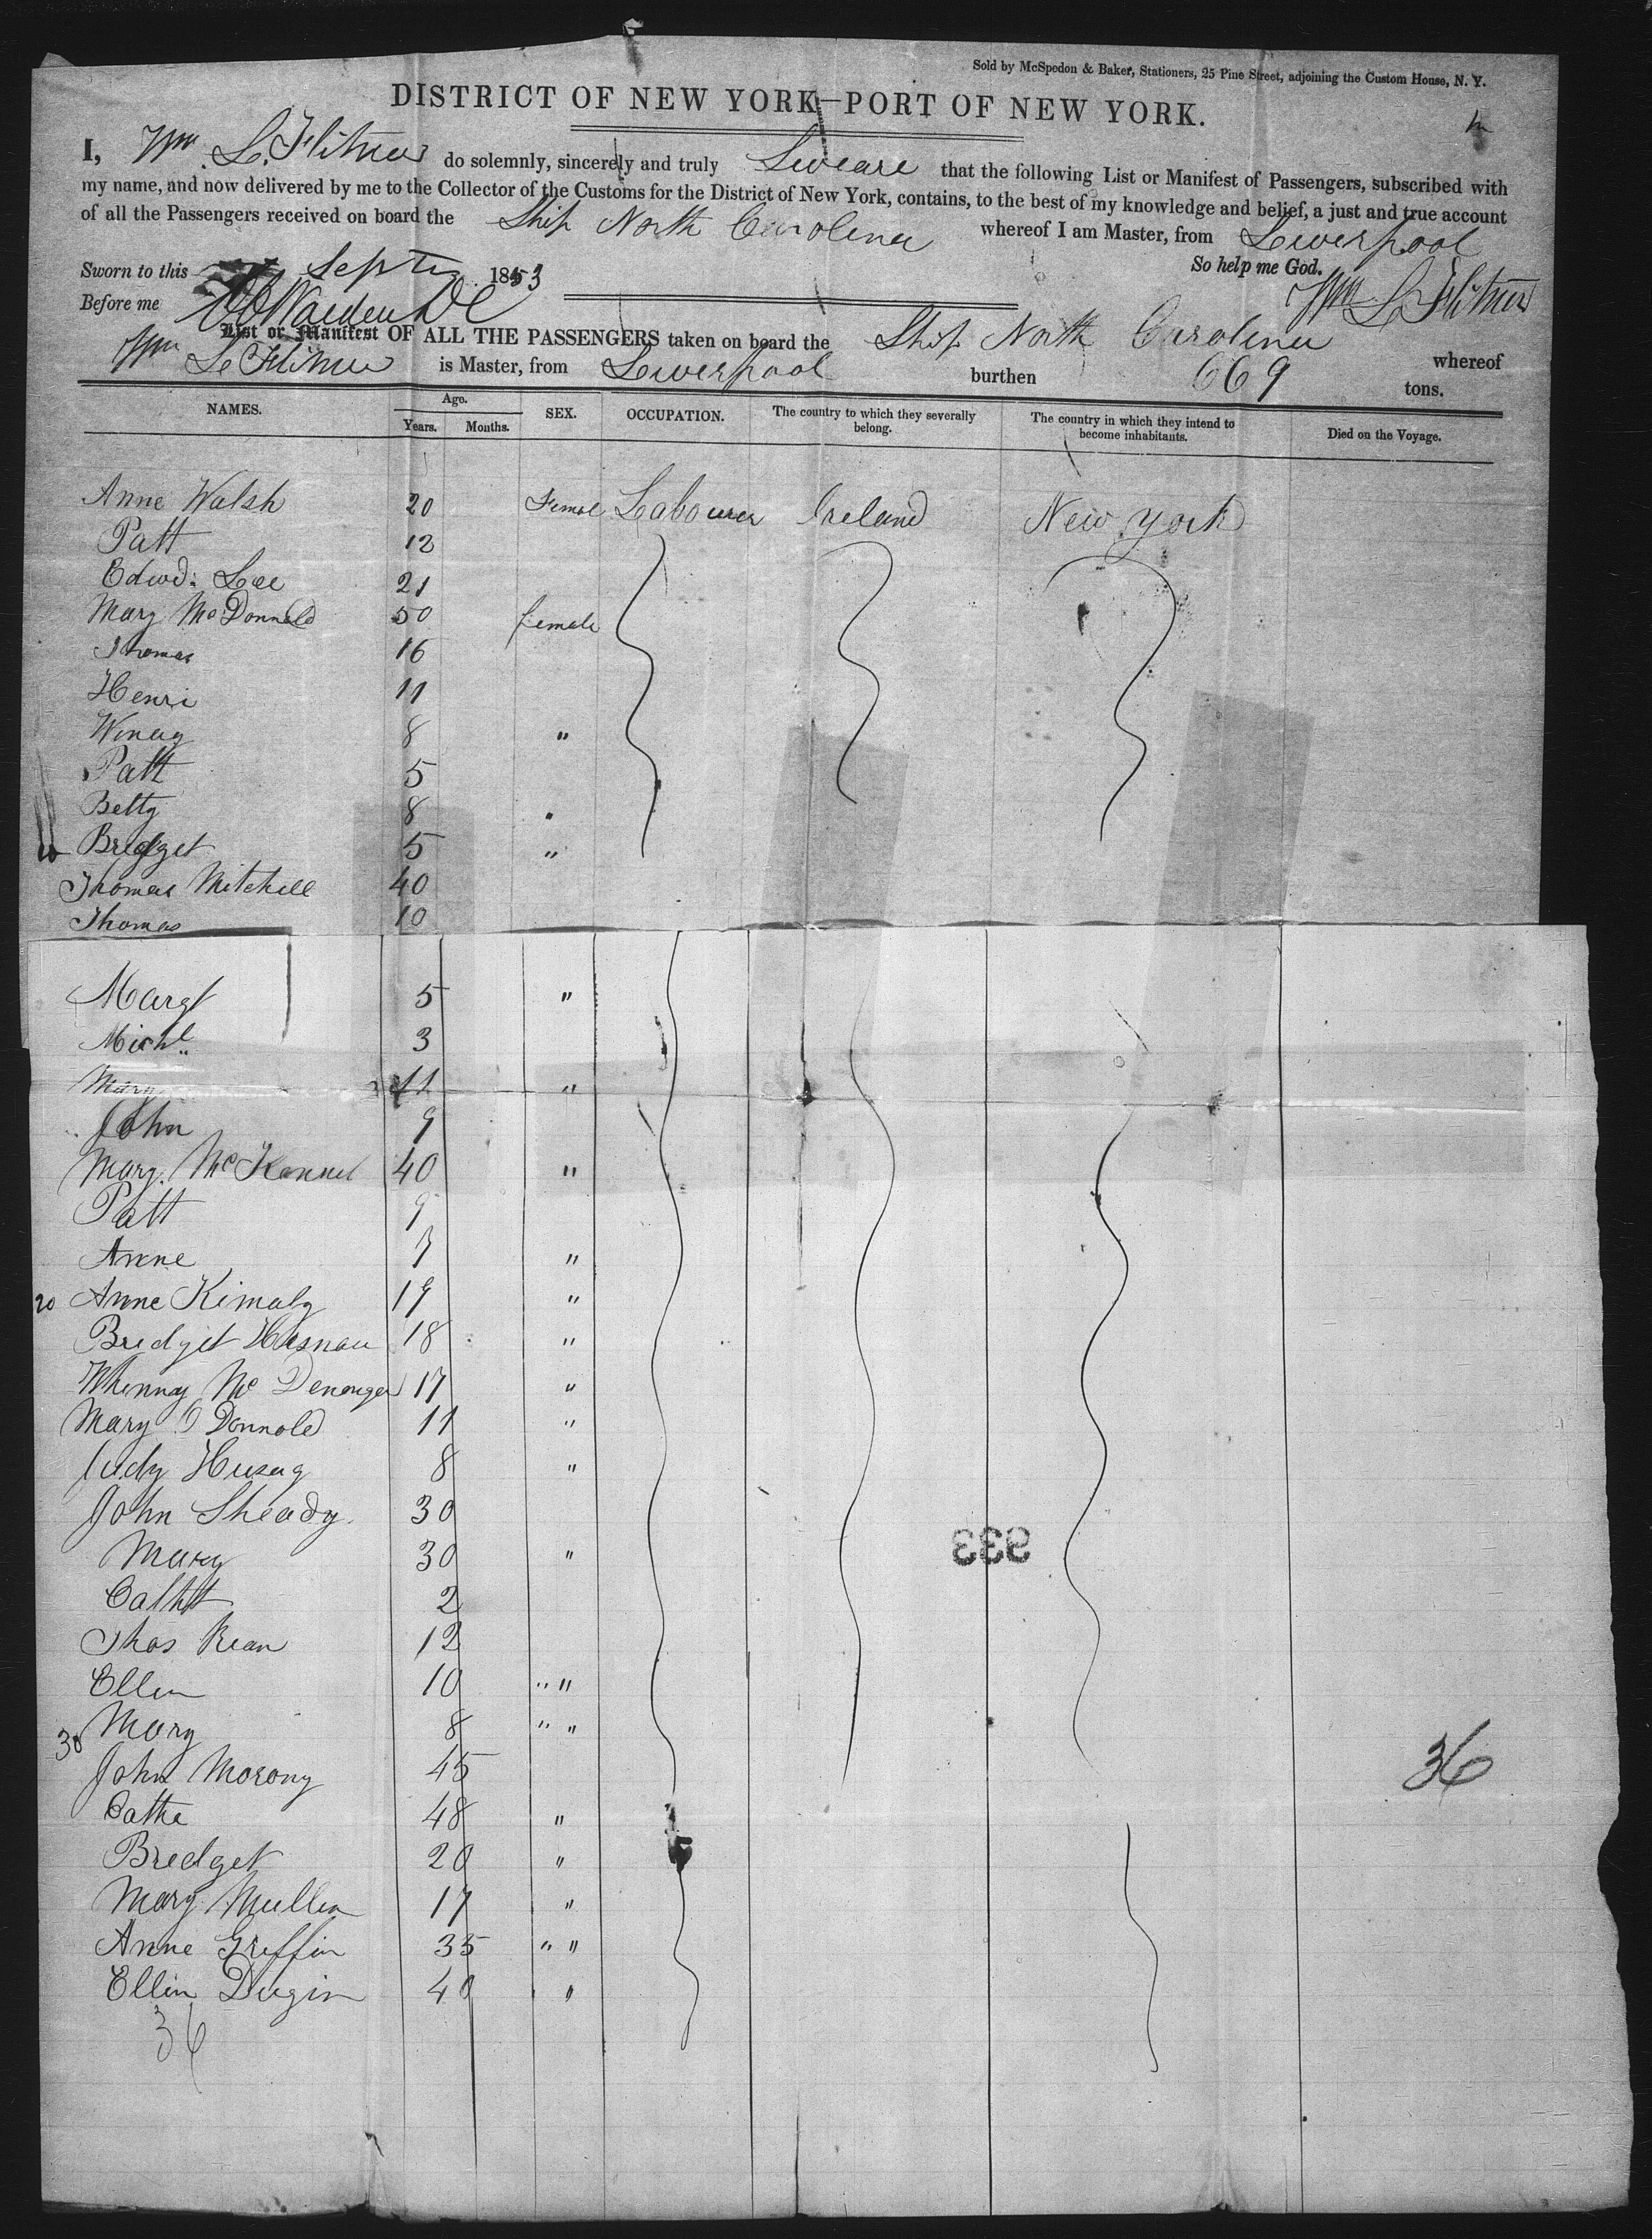 Sold by McSpedon & Baker, Stationers, 25 Pine Street, adjoining the Custom House, N. Y.
DISTRICT OF NEW YORK—PORT OF NEW YORK.
I, Wm L. Flitner do solemnly, sincerely and truly Sweare that the following List or Manifest of Passengers, subscribed with
my name, and now delivered by me to the Collector of the Customs for the District of New York, contains, to the best of my knowledge and belief, a just and true account
of all the Passengers received on board the Ship North Carolina whereof I am Master, from Liverpool
Sworn to this Sept 1853 So help me God.
Before me Wm L Flitner
List or Manifest OF ALL THE PASSENGERS taken on board the Ship North Carolina whereof
Wm L Flitner is Master, from Liverpool burthen 669 tons.
NAMES. Age. Years. Months. SEX. OCCUPATION. The country to which they severally belong. The country in which they intend to become inhabitants. Died on the Voyage.
Anne Walsh 20 Female Labourer Ireland New York
Patt 12
Edwd. Lee 21
Mary McDonnald 50 female
Thomas 16
Henri 11
Winey 8 "
Patt 5
Betty 8 "
Bridget 5 "
Thomas Mitchell 40
Thomas 10
Margt 5 "
Michl 3
Mary 11 "
John 9
Mary. McKennel 40 "
Patt 9
Anne 7 "
20 Anne Kimaly 19 "
Bridget 18 "
Whinny Mc 17 "
Mary O Donnold 11 "
Judy 8 "
John Sheady. 30
Mary 30 "
Catht 2
Thos Rean 12
Ellen 10 " "
30 Mary 8 " "
John Morony 45
Cathe 48 "
Bredget 20 "
Mary Mullen 17 "
Anne Griffin 35 " "
Ellin Dugin 40 "
36
933
36